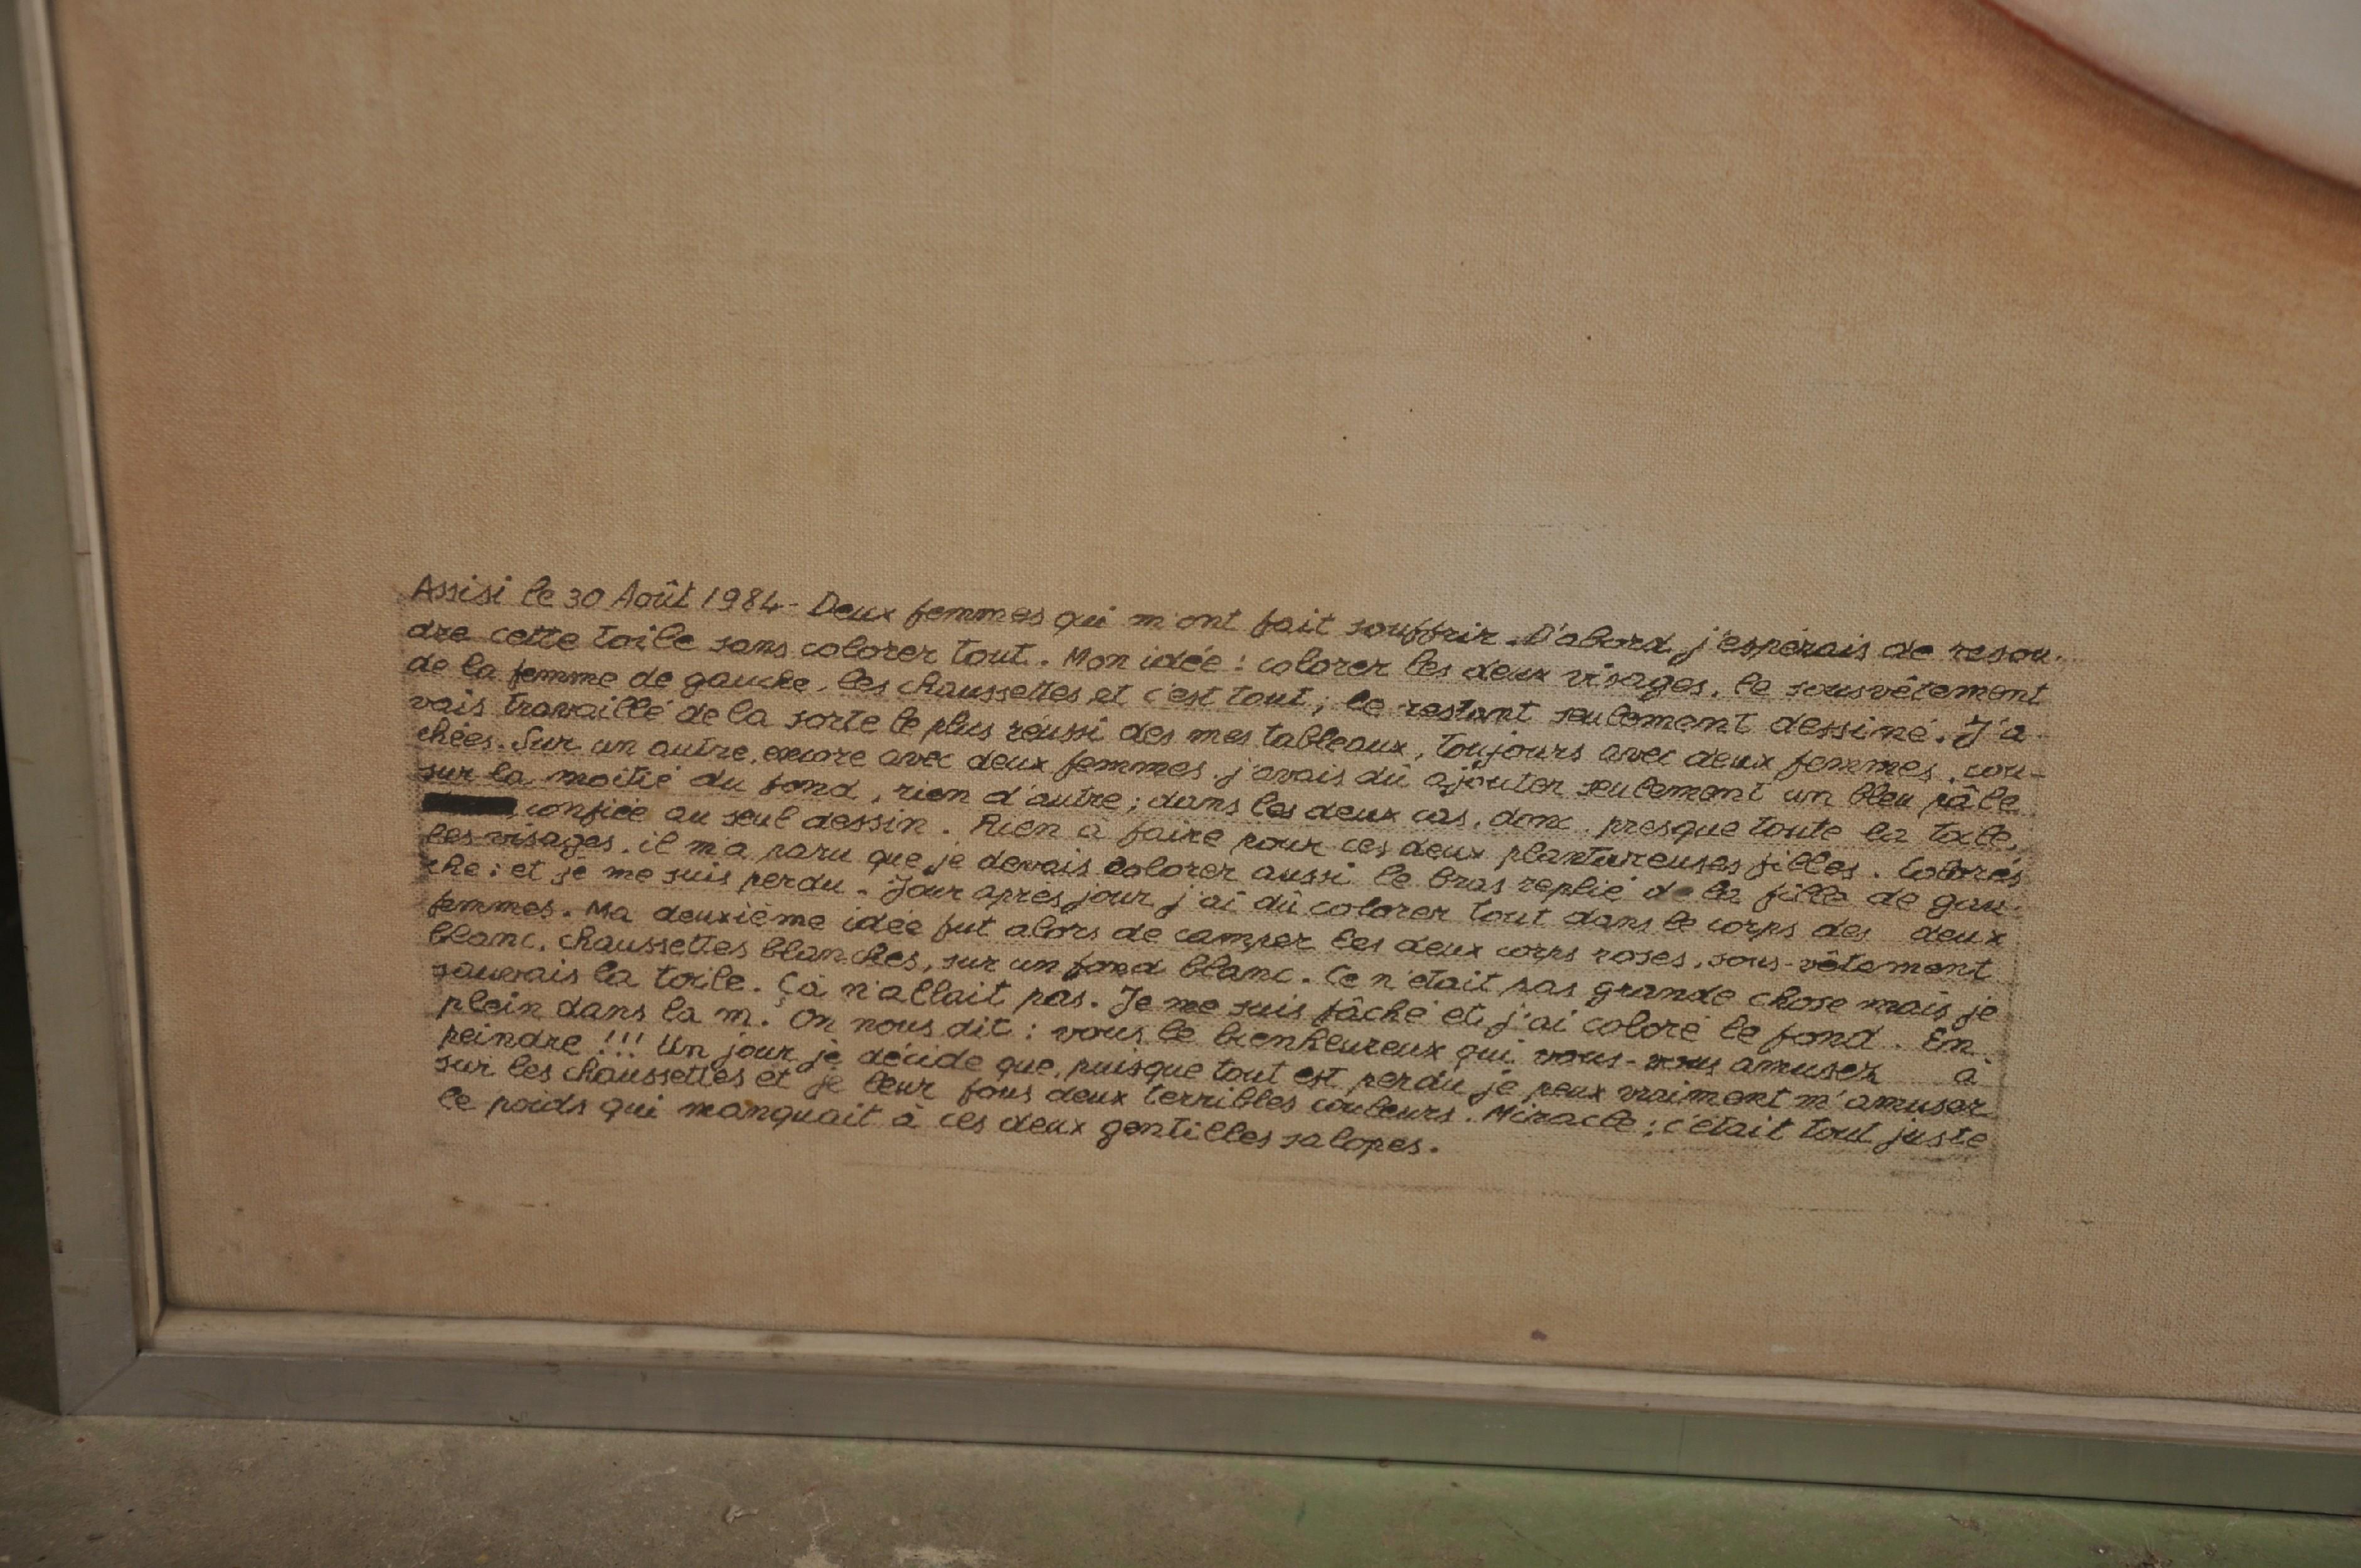 Assisi le 30 Août 1984 - Deux femmes qui m'ont fait souffrir. D'abord j'espérais de resou-
dre cette toile sans colorer tout. Mon idée : colorer les deux visages, le sousvêtement
de la femme de gauche, les chaussettes et c'est tout ; le restant seulement dessiné. J'a-
vais travaillé de la sorte le plus réussi des mes tableaux, toujours avec deux femmes, cou-
chées. Sur un autre, encore avec deux femmes, j'avais dû ajouter seulement un bleu pâle
sur la moitié du fond, rien d'autre ; dans les deux cas, donc, presque toute la toile,
confiée au seul dessin. Rien à faire pour ces deux plantureuses filles. Colorés
les visages, il m'a paru que je devais colorer aussi le bras replié de la fille de gau-
che : et je me suis perdu. Jour après jour j'ai dû colorer tout dans le corps des deux
femmes. Ma deuxième idée fut alors de camper les deux corps roses, sous-vêtement
blanc, chaussettes blanches, sur un fond blanc. Ce n'était pas grande chose mais je
sauvais la toile. Çà n'allait pas. Je me suis fâché et j'ai coloré le fond. En
plein dans la m. On nous dit : vous le bienheureux qui vous-vous amusez à
peindre !!! Un jour je décide que, puisque tout est perdu je peux vraiment m'amuser
sur les chaussettes et je leur fous deux terribles couleurs. Miracle ; c'était tout juste
le poids qui manquait à ces deux gentilles salopes.